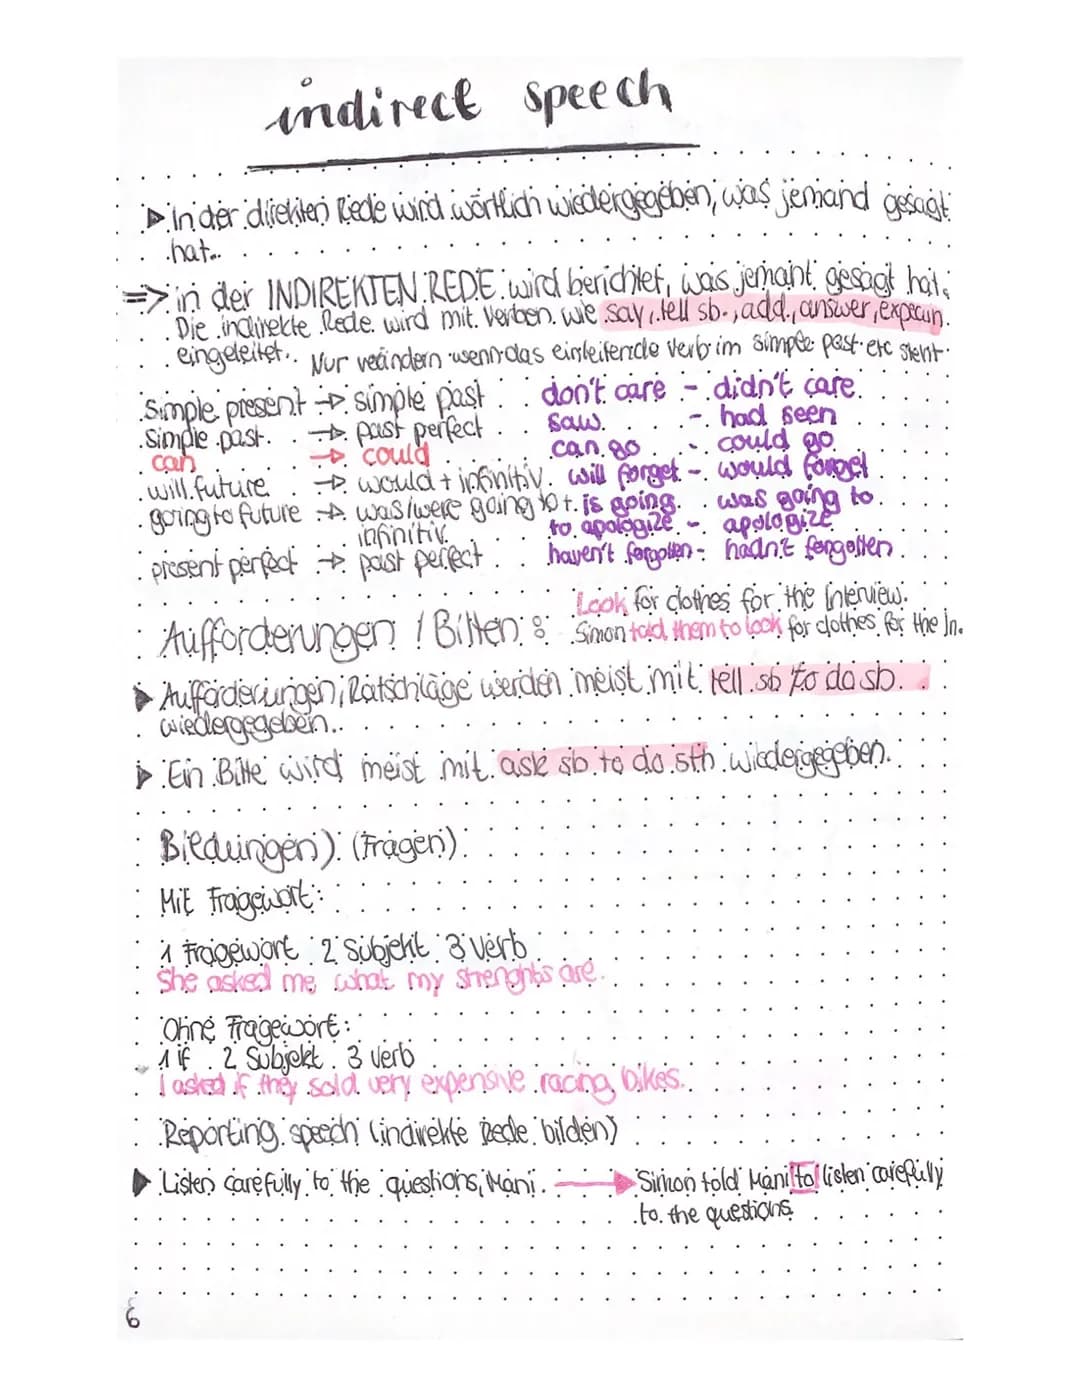 indirect speech
In der direkten Rede wird wörtlich wiedergegeben, was jemand gesagt
hat.
=> in der INDIREKTEN REDE wird berichtet, was jemant gesagt hat.
Die indirekte Rede wird mit Verben wie say, tell sb., add, answer, explain
eingeleitet. Nur verändern wenn das einleitende Verb im simple past etc steht
Simple present → simple past don't care - didn't care
Simple past → past perfect saw - had seen
can → could can go - could go
will future → would + infinitiv will forget - would forget
going to future → was/were going to + is going was going to
infinitiv to apologize - apologize
present perfect → past perfect haven't forgotten - hadn't forgotten
Look for clothes for the interview.
Aufforderungen / Bitten: Simon told them to look for clothes for the In.
Aufforderungen, Ratschläge werden meist mit tell sb to do sb.
wiedergegeben.
Ein Bitte wird meist mit ask sb. to do sth wiedergegeben.
Bildungen) (Fragen)
Mit Fragewort:
1 Fragewort 2 Subjekt 3 Verb
She asked me what my strenghts are.
Ohne Fragewort:
1 if 2 Subjekt 3 Verb
I asked if they sold very expensive racing bikes.
Reporting speech (indirekte Rede bilden)
Listen carefully to the questions, Mani. → Simon told Mani to listen carefully
to the questions.
6